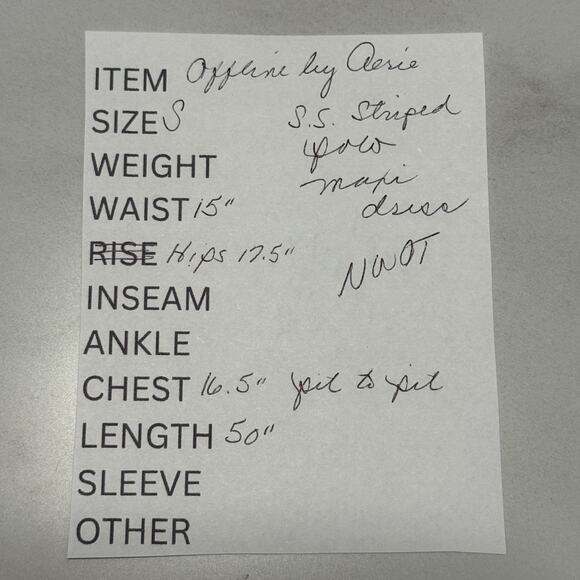 ITEM Offline by Aerie
SIZE S S.S. Striped
polo
WEIGHT
maxi
WAIST 15" dress
RISE Hips 17.5"
NWOT
INSEAM
ANKLE
CHEST 16.5" pit to pit
LENGTH 50"
SLEEVE
OTHER